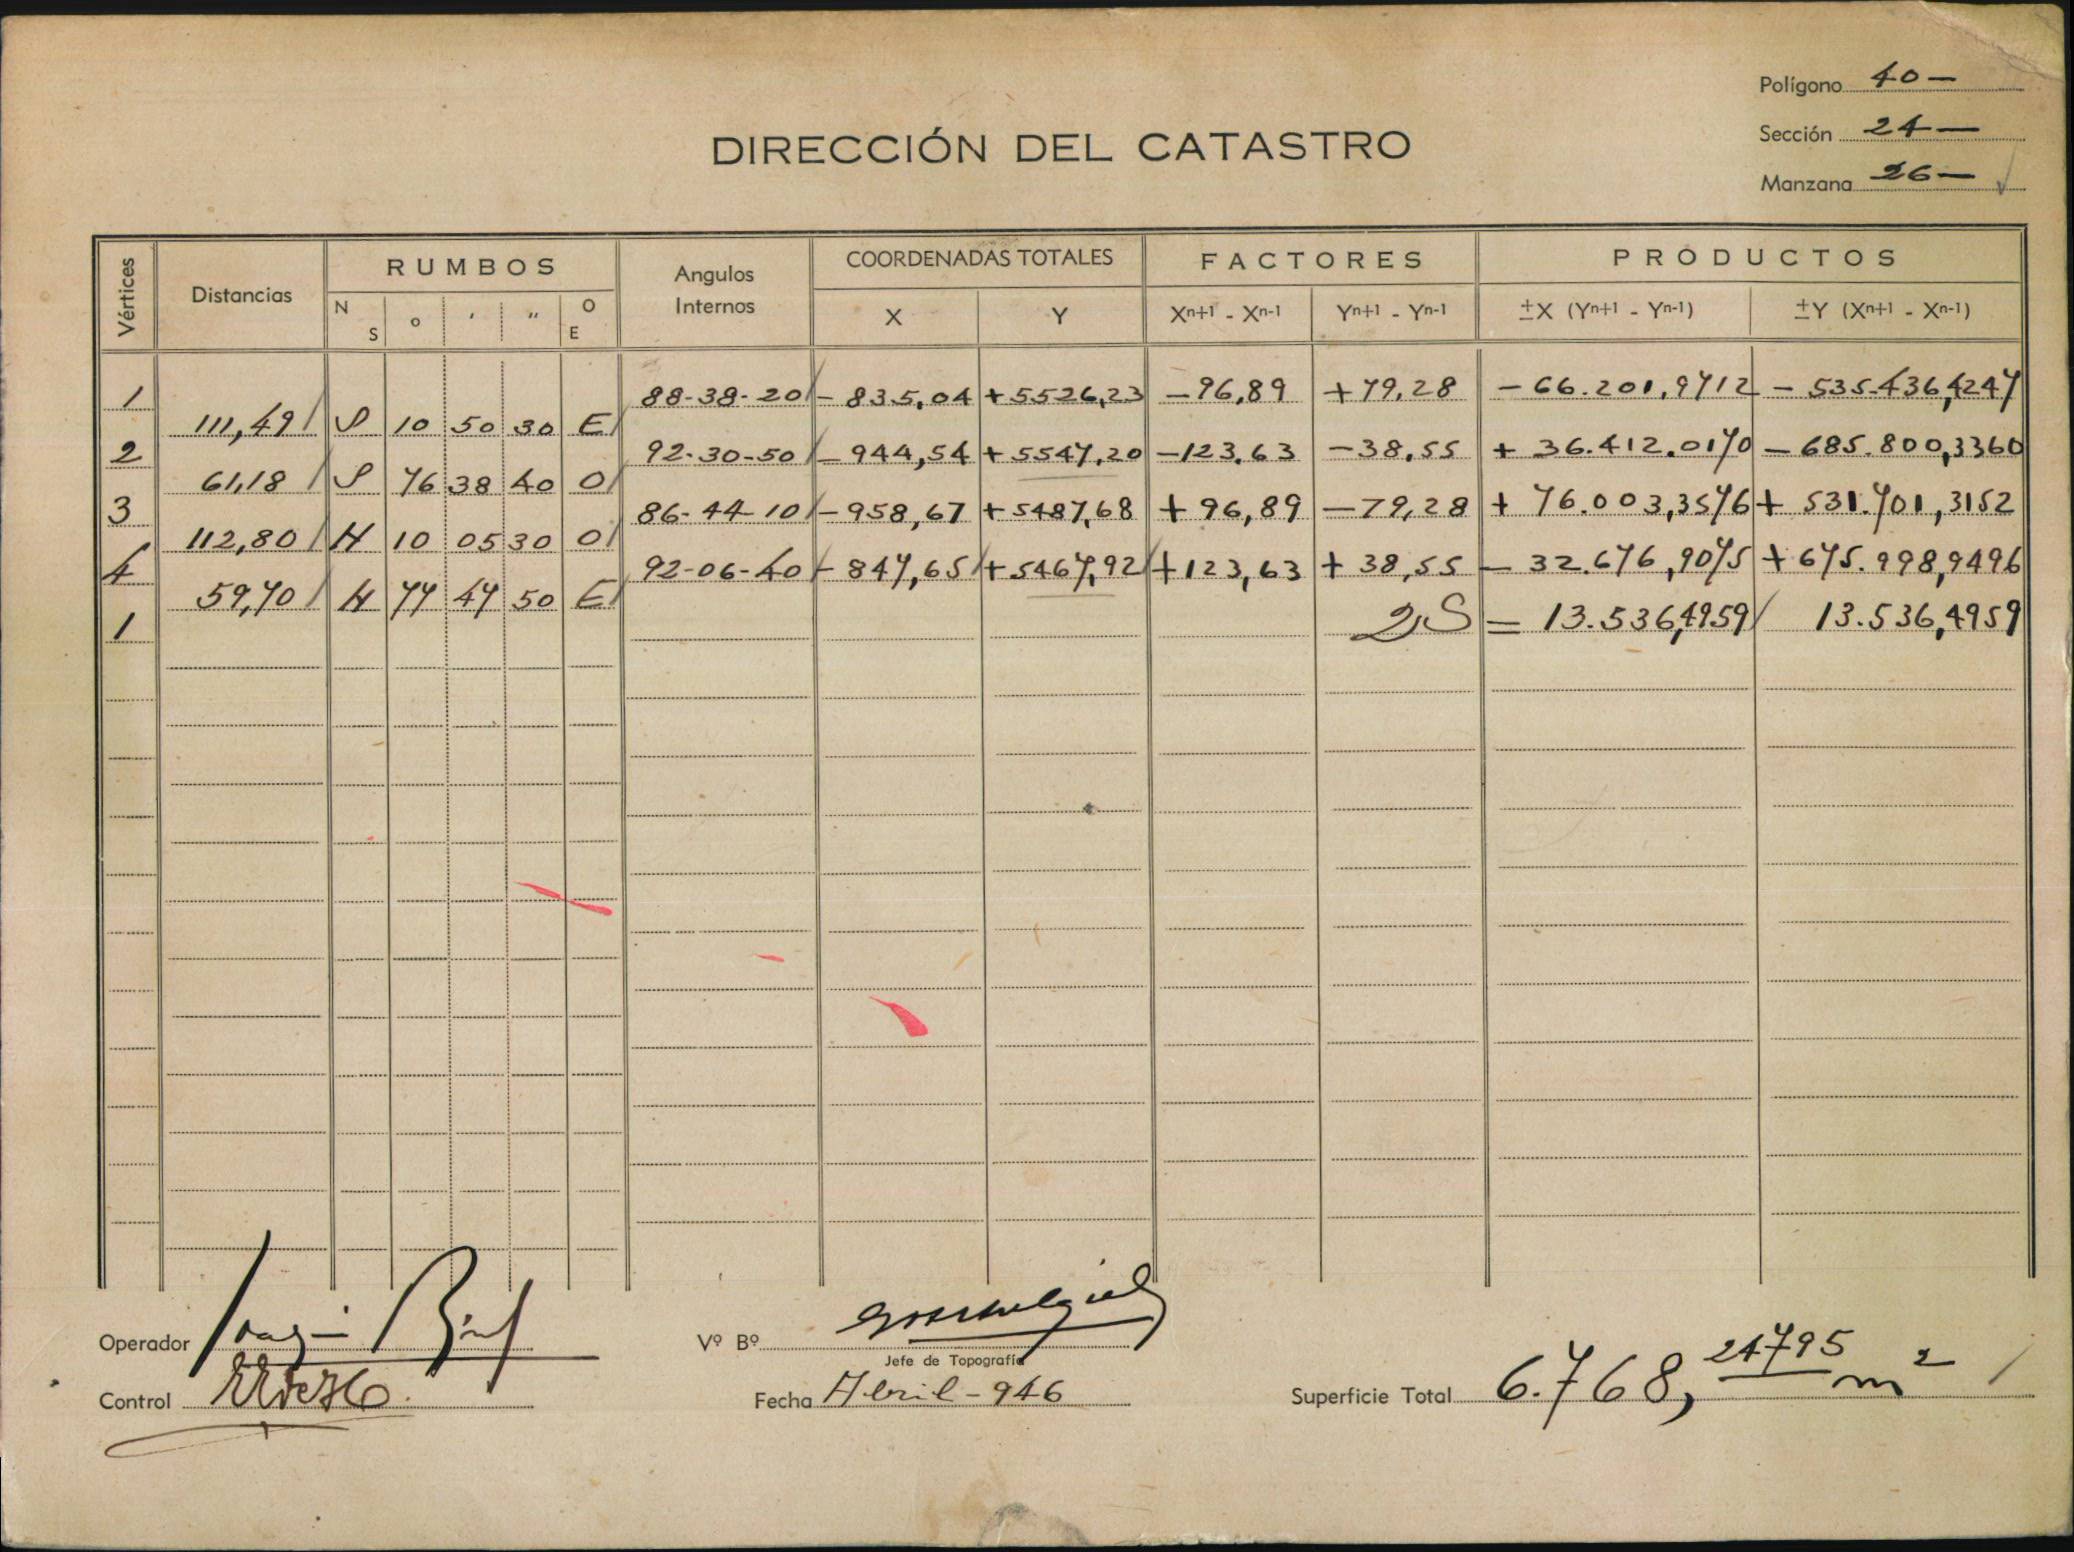 Polígono 40-
DIRECCIÓN DEL CATASTRO
Sección 24-
Manzana 26-
Vértices Distancias RUMBOS Angulos Internos COORDENADAS TOTALES FACTORES PRODUCTOS
N S o ' " O E X Y Xn+1 - Xn-1 Yn+1 - Yn-1 ±X (Yn+1 - Yn-1) ±Y (Xn+1 - Xn-1)
1 88-38-20 - 835,04 +5526,23 -96,89 +79,28 - 66.201,9712 - 535.436,4247
111,49 S 10 50 30 E
2 92-30-50 - 944,54 +5547,20 -123,63 -38,55 + 36.412,0170 - 685.800,3360
61,18 S 76 38 40 O
3 86-44-10 -958,67 +5487,68 +96,89 -79,28 + 76.003,3576 + 531.701,3152
112,80 N 10 05 30 O
4 92-06-40 - 847,65 +5467,92 +123,63 +38,55 - 32.676,9075 +675.998,9496
59,70 N 77 47 50 E
1 2S = 13.536,4959 13.536,4959
Operador
Vº Bº
Jefe de Topografía
Control
Fecha Abril - 946
Superficie Total 6.768,24795 m2